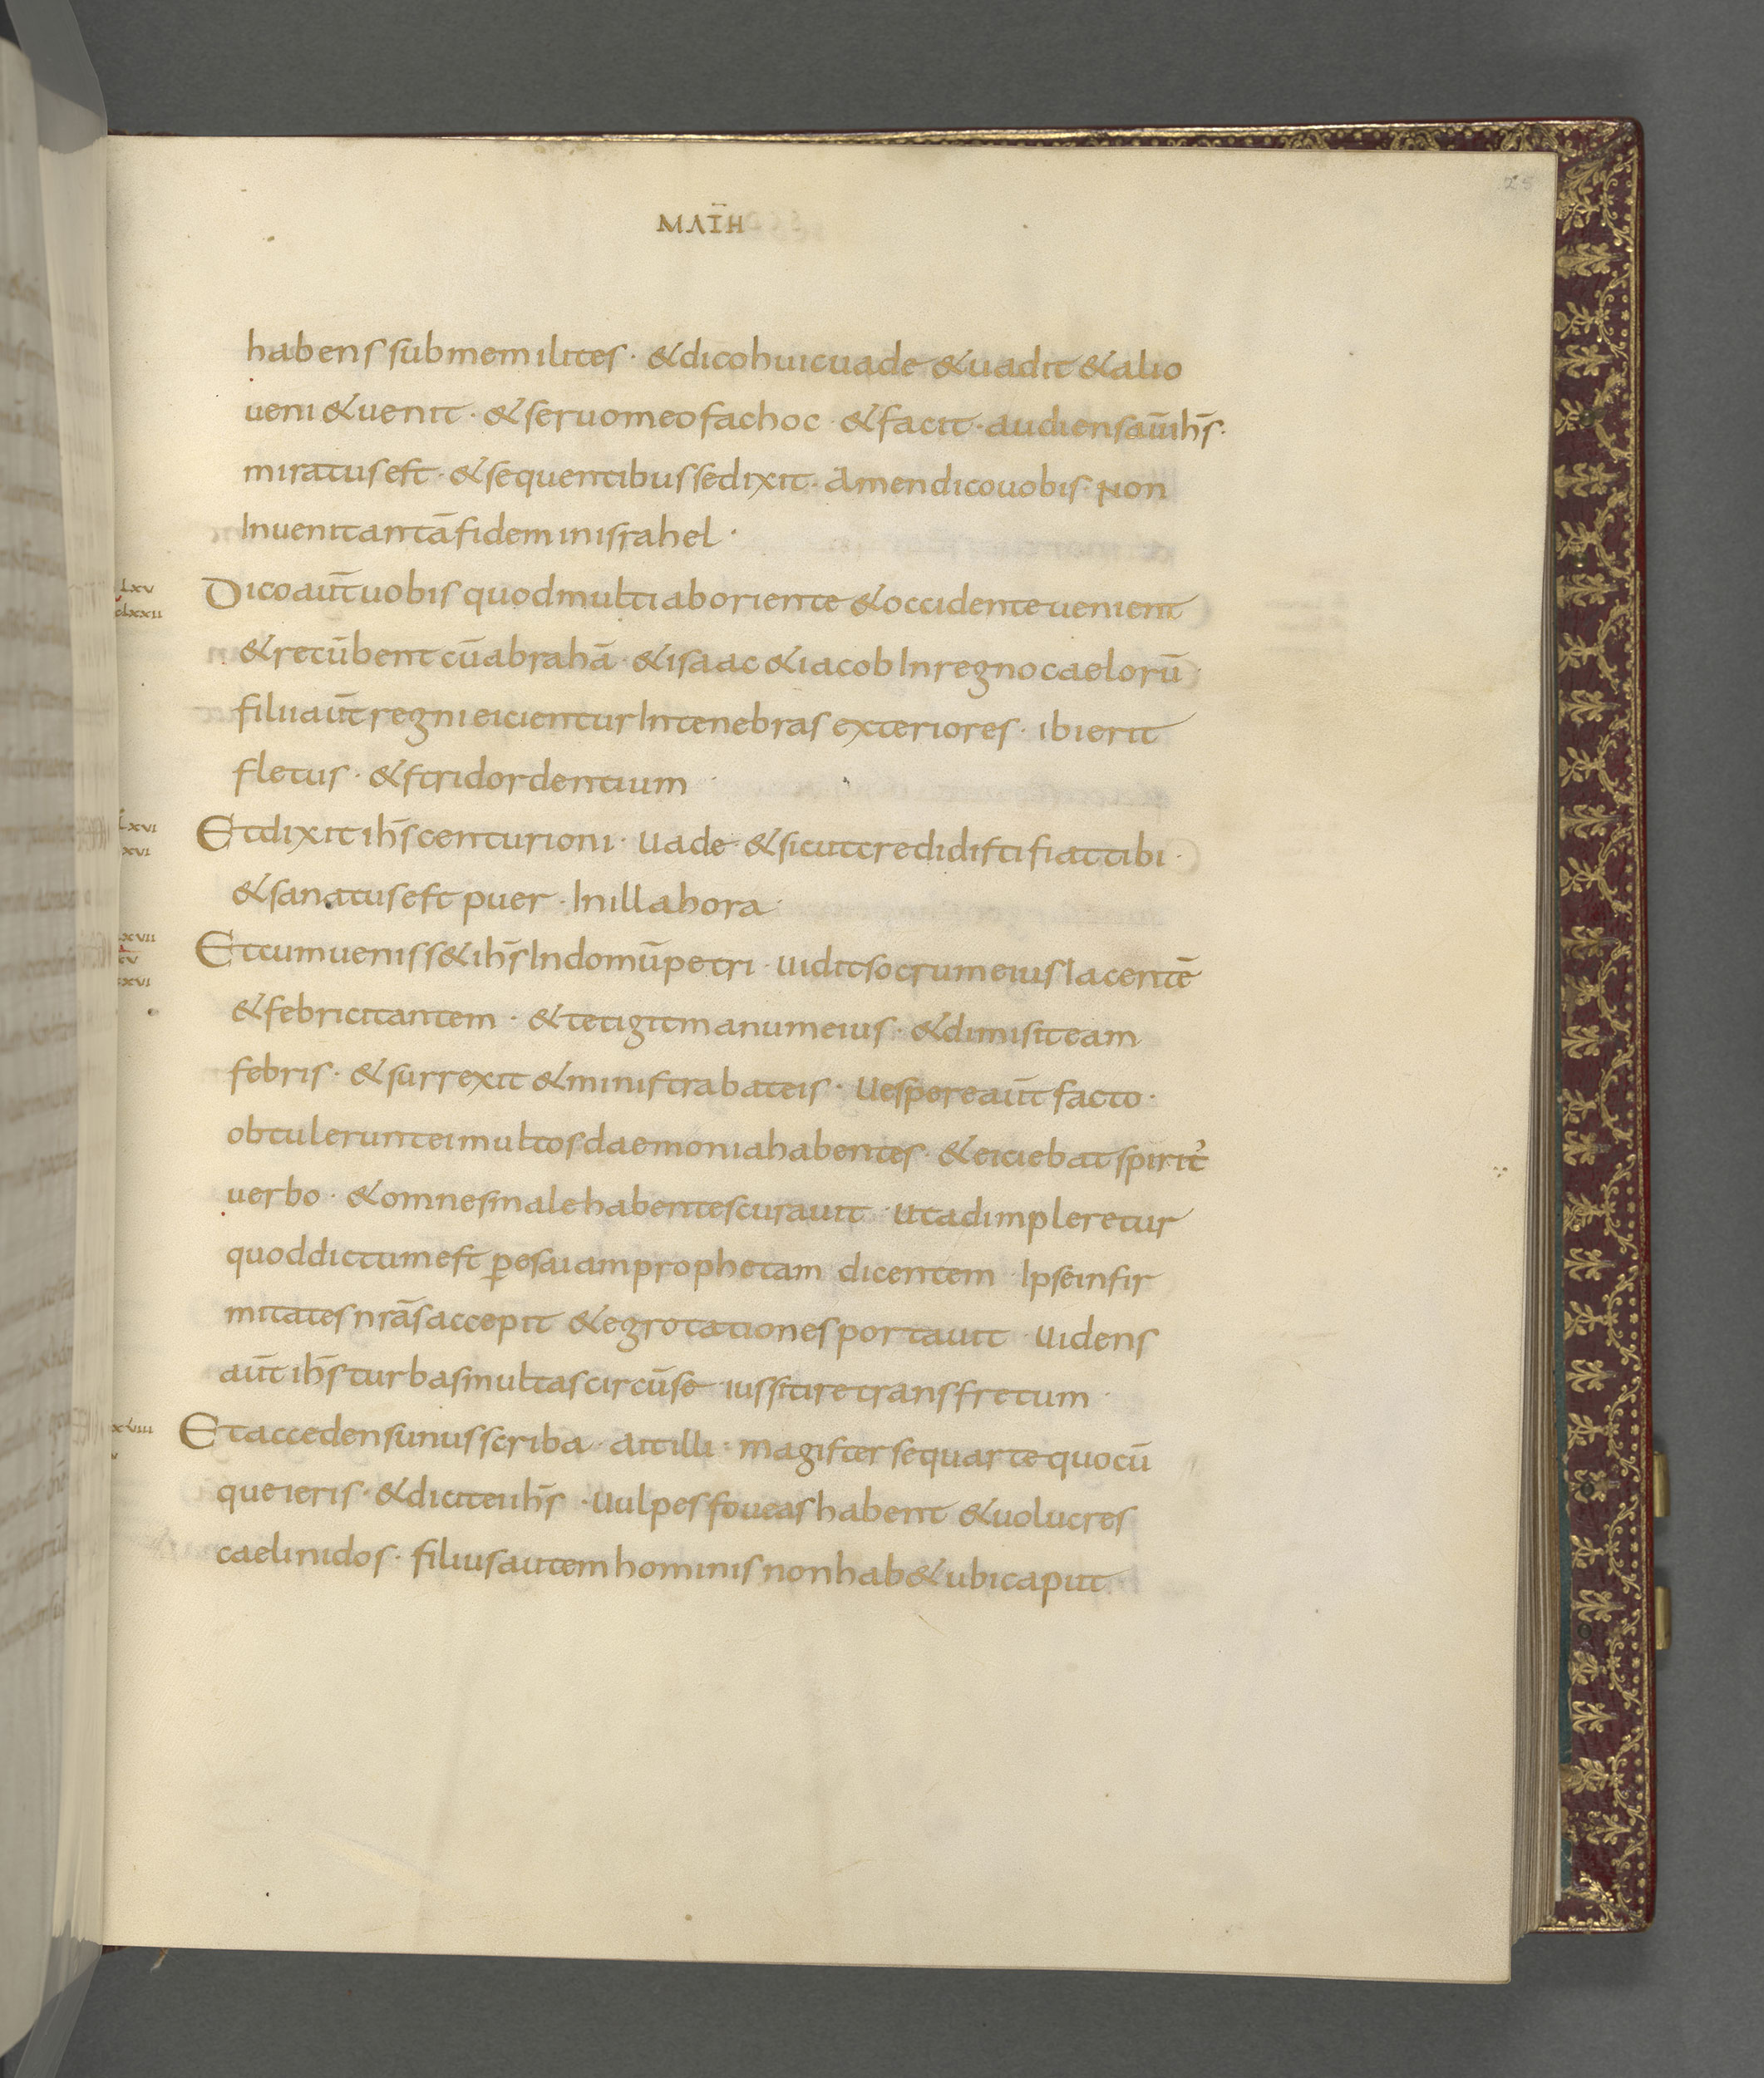 25
MAT̄H
habens sub me milites · & dico huic uade & uadit & alio
ueni & uenit · & seruo meo fac hoc · & facit · audiens aūt ih̄s ·
miratus est · & sequentibus se dixit · Amen dico uobis · non
Inueni tantā fidem in israhel ·
LXV
Dico aūt uobis quod multi ab oriente & occidente uenient
clxxii
& recūbent cū abrahā · & isaac & iacob In regno caelorū ·
filii aūt regni eicientur In tenebras exteriores · ibi erit
fletus · & stridor dentium
LXVI
Et dixit ih̄s centurioni · Uade · & sicut credidisti fiat tibi ·
XVI
& sanatus est puer · In illa hora ·
LXVII
Et cumueniss& ih̄s In domū petri · Uidit socrum eius Iacentē
xv
xxvi
& febricitantem · & tetigit manum eius · & dimisit eam
febris · & surrexit & ministrabat eis · Uespere aūt facto ·
obtulerunt ei multos daemonia habentes · & eiciebat spirit'
uerbo · & omnes male habentes curauit · Ut adimpleretur
quod dictum est p̱ esaiam prophetam dicentem · Ipse infir
mitates nrās accepit & egrotationes portauit · Uidens
aūt ih̄s turbas multas circū se · iussit ire trans fretum ·
xuiii
Et accedens unus scriba · ait illi · magister sequar te quocū
que ieris · & dicit ei ih̄s · Uulpes foueas habent & uolucres
caeli nidos · filius autem hominis non hab& ubi caput